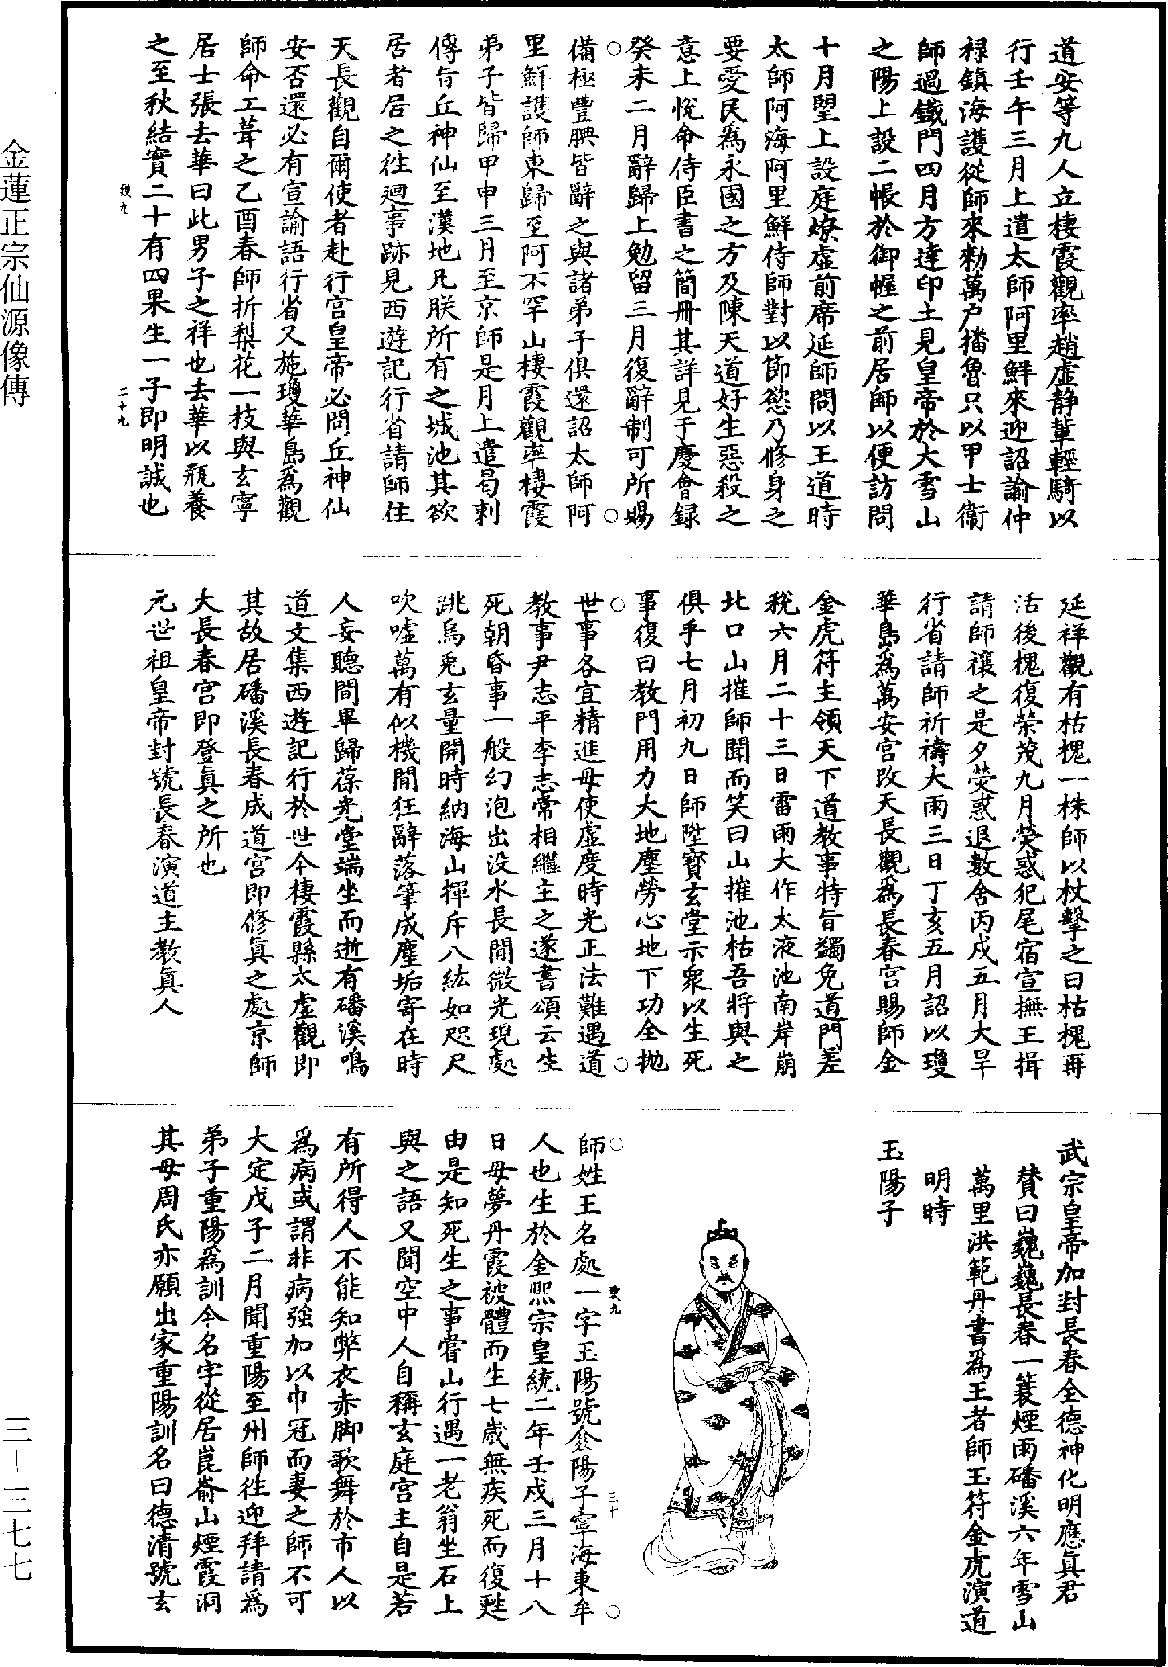 金蓮正宗仙源像傳
三—三七七
道安等九人立棲霞觀率趙虛靜輩輕騎以
行壬午三月上遣太師阿里鮮來迎詔諭仲
祿鎮海護從師來勑萬戶播魯只以甲士衞
師過鐵門四月方達印土見皇帝於大雪山
之陽上設二帳於御幄之前居師以便訪問
十月朢上設庭燎虛前席延師問以王道時
太師阿海阿里鮮侍師對以節慾乃修身之
要愛民為永國之方及陳天道好生惡殺之
意上悅命侍臣書之簡冊其詳見于慶會録
癸未二月辭歸上勉留三月復辭制可所賜
備極豐腆皆辭之與諸弟子俱還詔太師阿
里鮮護師東歸至阿不罕山棲霞觀率棲霞
弟子皆歸甲申三月至京師是月上遣曷剌
傳旨丘神仙至漢地凡朕所有之城池其欲
居者居之徃迴事跡見西遊記行省請師住
天長觀自爾使者赴行宫皇帝必問丘神仙
安否還必有宣諭語行省又施瓊華島為觀
師命工葺之乙酉春師折梨花一枝與玄寧
居士張去華曰此男子之祥也去華以瓶養
之至秋結實二十有四果生一子即明誠也
二十九
延祥觀有枯槐一株師以杖擊之曰枯槐再
活後槐復榮茂九月熒惑犯尾宿宣撫王揖
請師禳之是夕熒惑退數舍丙戌五月大旱
行省請師祈禱大雨三日丁亥五月詔以瓊
華島為萬安宫改天長觀為長春宫賜師金
金虎符主領天下道教事特旨蠲免道門差
稅六月二十三日雷雨大作太液池南岸崩
北口山摧師聞而笑曰山摧池枯吾將與之
俱乎七月初九日師陞寳玄堂示衆以生死
事復曰教門用力大地塵勞心地下功全抛
世事各宜精進毋使虛度時光正法難遇道
教事尹志平李志常相繼主之遂書頌云生
死朝昏事一般幻泡出没水長閒微光現處
跳烏兎玄量開時納海山揮斥八紘如咫尺
吹噓萬有似機関狂辭落筆成塵垢寄在時
人妄聽間畢歸葆光堂端坐而逝有磻溪鳴
道文集西遊記行於世今棲霞縣太虛觀即
其故居磻溪長春成道宫即修眞之處京師
大長春宫即登眞之所也
元世祖皇帝封號長春演道主教眞人
武宗皇帝加封長春全德神化明應眞君
賛曰巍巍長春一蓑煙雨磻溪六年雪山
萬里洪範丹書為王者師玉符金虎演道
明時
玉陽子
師姓王名處一字玉陽號傘陽子寧海東牟
人也生於金熙宗皇統二年壬戌三月十八
日母夢丹霞被體而生七歲無疾死而復甦
由是知死生之事嘗山行遇一老翁坐石上
與之語又聞空中人自稱玄庭宫主自是若
有所得人不能知弊衣赤脚歌舞於市人以
為病或謂非病強加以巾冠而妻之師不可
大定戊子二月聞重陽至州師徃迎拜請為
弟子重陽為訓今名字從居崑嵛山煙霞洞
其母周氏亦願出家重陽訓名曰德清號玄
三十